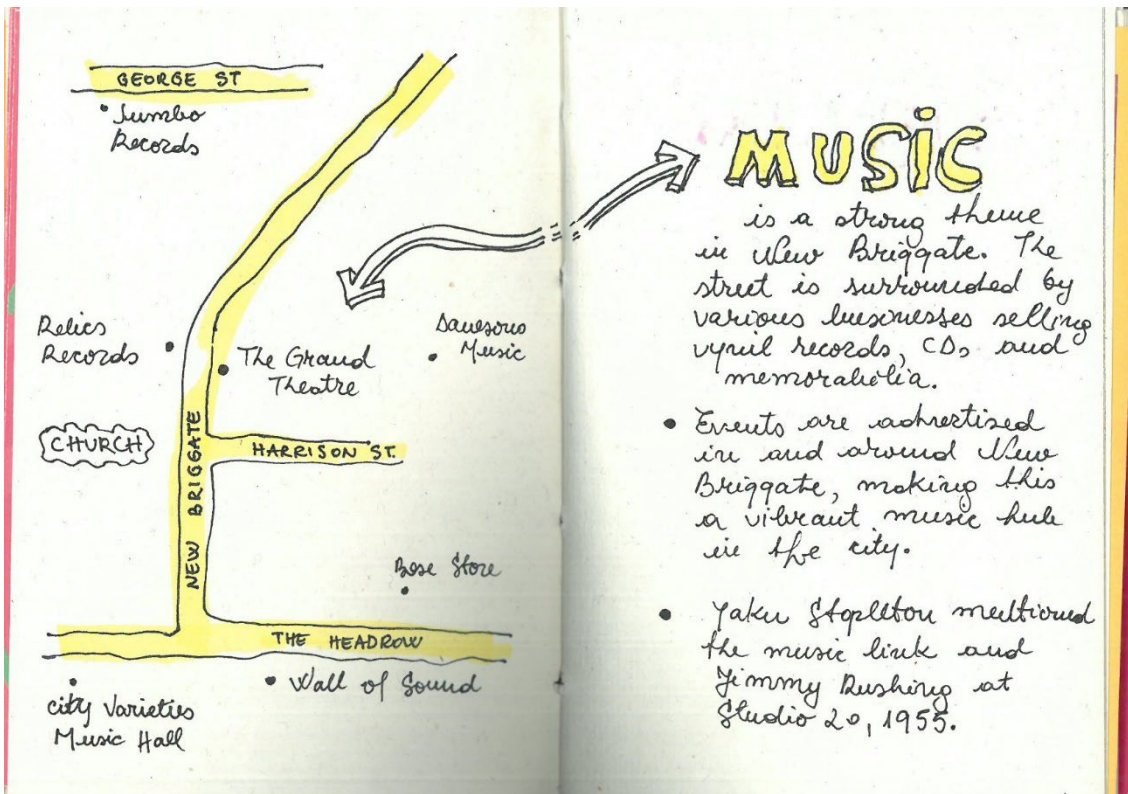 GEORGE ST
Jumbo
Records
Relics
Records
The Grand
Theatre
Music
CHURCH
HARRISON ST.
NEW BRIGGATE
Bose Store
THE HEADROW
Wall of Sound
City Varieties
Music Hall
MUSIC
is a strong theme
in New Briggate. The
street is surrounded by
various businesses selling
vynil records, CDs and
memorabilia.
• Events are advertised
in and around New
Briggate, making this
a vibrant music hub
in the city.
• Yaku Stapleton mentioned
the music link and
Jimmy Rushing at
Studio 20, 1955.